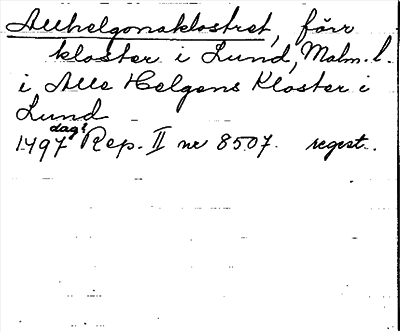 Allhelgonaklostret, förr
kloster i Lund, Malm. l.
i Alle Helgens Kloster i
Lund
1497 dag! Rep. II nr 8507. regest.